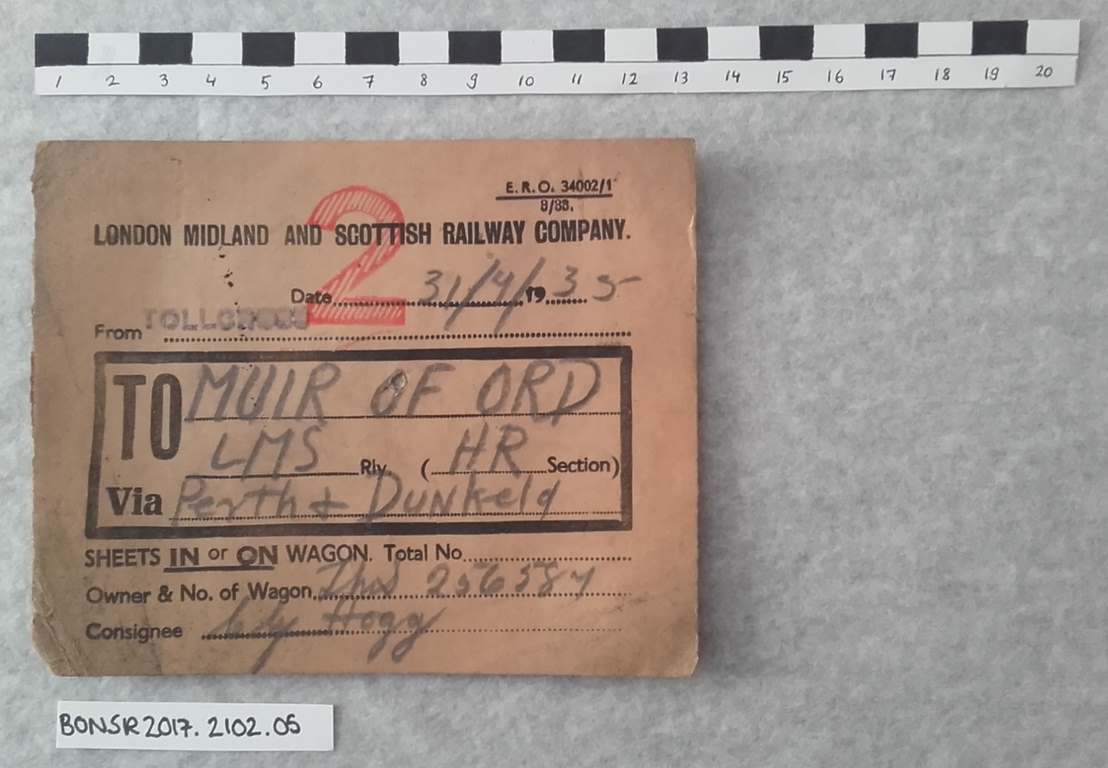 1 2 3 4 5 6 7 8 9 10 11 12 13 14 15 16 17 18 19 20
E. R. O. 34002/1
2
LONDON MIDLAND AND SCOTTISH RAILWAY COMPANY.
Date 31/4/1935
From TOLLCROSS
TO MUIR OF ORD
LMS Rly. (HR Section)
Via Perth & Dunkeld
SHEETS IN or ON WAGON. Total No.
Owner & No. of Wagon. 256584
Consignee Hogg
BONSR2017.2102.05